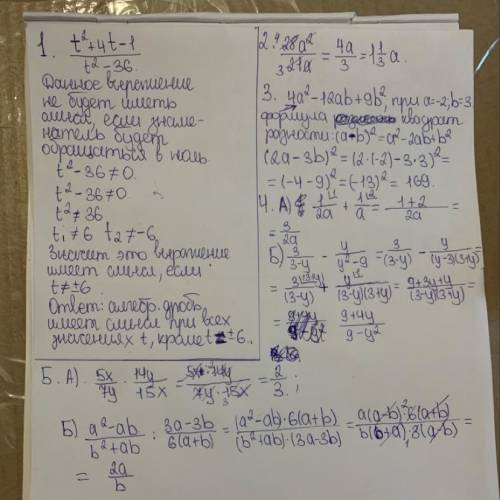 1. (t²+4t-1)/(t²-36)
Данное выражение
не будет иметь
смысл, если знаме-
натель будет
обращаться в ноль.
t²-36≠0.
t²-36≠0
t²≠36
t₁≠6 t₂≠-6
Значит это выражение
имеет смысл, если
t≠±6.
Ответ: алгебр. дробь
имеет смысл при всех
значениях t, кроме t=±6.
2. 28a²/21a = 4a/3 = 1 1/3 a.
3. 4a²-12ab+9b², при a=-2, b=3
формула квадрат
разности: (a-b)²=a²-2ab+b²
(2a-3b)²=(2·(-2)-3·3)²=
=(-4-9)²=(-13)²=169.
4. А) 1/2a + 1/a = (1+2)/2a =
= 3/2a
Б) 3/(3-y) - y/(y²-9) = 3/(3-y) - y/((y-3)(y+3)) =
= 3(3+y)/(3-y) + y/((3-y)(3+y)) = (9+3y+y)/((3-y)(3+y)) =
= (9+4y)/(9-y²)
Б. А). 5x/7y · 14y/15x = 5x·14y/7y·15x = 2/3.;
Б) (a²-ab)/(b²+ab) : (3a-3b)/6(a+b) = (a²-ab)·6(a+b)/(b²+ab)·(3a-3b) = a(a-b)·6(a+b)/b(b+a)·3(a-b) =
= 2a/b